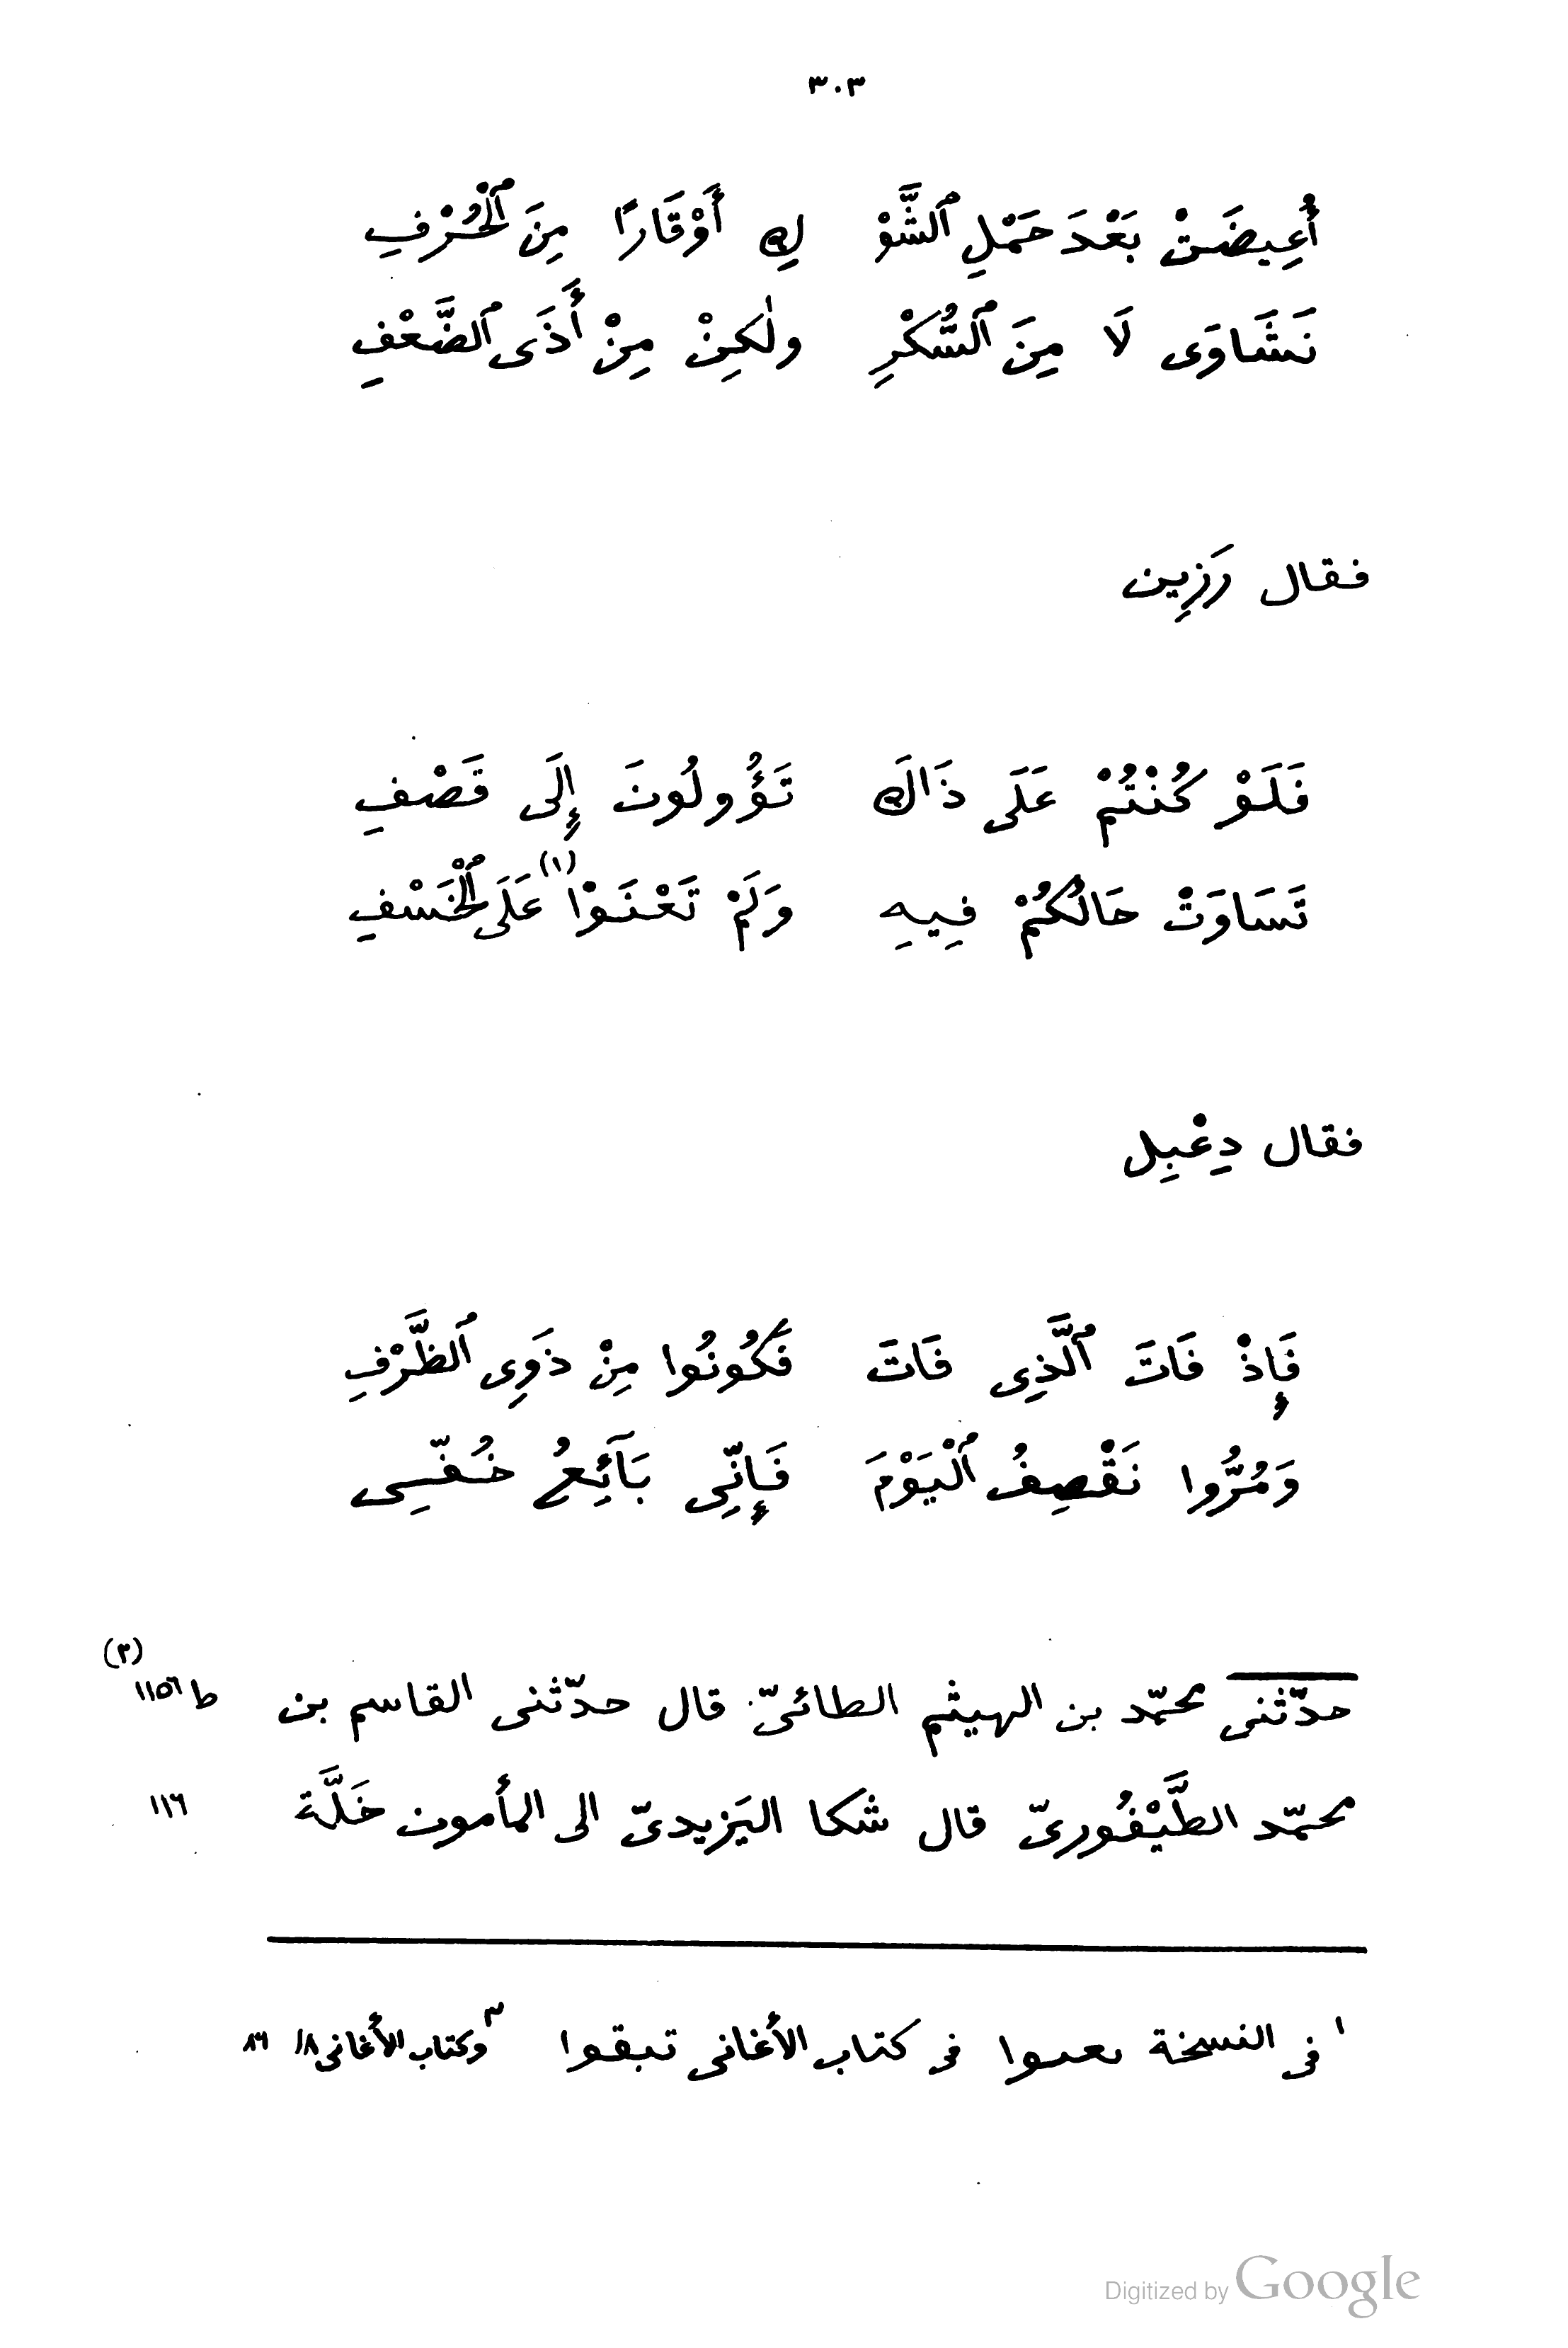 ٣٠٣
أُعِيضَتْ بَعْدَ حَمْلِ ٱلشَّوْ   كِ أَوْقَارًا مِنَ ٱلْحُرْفِ
نَشَاوَى لَا مِنَ ٱلسُّكْرِ   ولٰكِنْ مِنْ أَذَى ٱلضَّعْفِ
فقال رَزِين
فَلَوْ كُنْتُمْ عَلَى ذَاكَ   تَؤُولُونَ إِلَى قَصْفِ
تَسَاوَتْ حَالُكُمْ فِيهِ   وَلَمْ تَعْنَوْا (١) عَلَى ٱلْخَسْفِ
فقال دِعْبِل
فَإِذْ فَاتَ ٱلَّذِى فَاتَ   فَكُونُوا مِنْ ذَوِى ٱلظَّرْفِ
وَمُرُّوا نَقْصِفُ ٱلْيَوْمَ   فَإِنِّى بَآئِعُ خُفِّى
(٣)
حدّثنى محمّد بن الهيثم الطائىّ قال حدّثنى القاسم بن   ط ١١٥٦
محمّد الطَّيْفُورىّ قال شكا اليَزيدىّ الى المأمون خَلَّة   ١١٦
١ فى النسخة ٮعٮوا فى كتاب الأغانى تبقوا   ٣ وكتاب الأغانى ١٨/ ٨٦
Digitized by Google